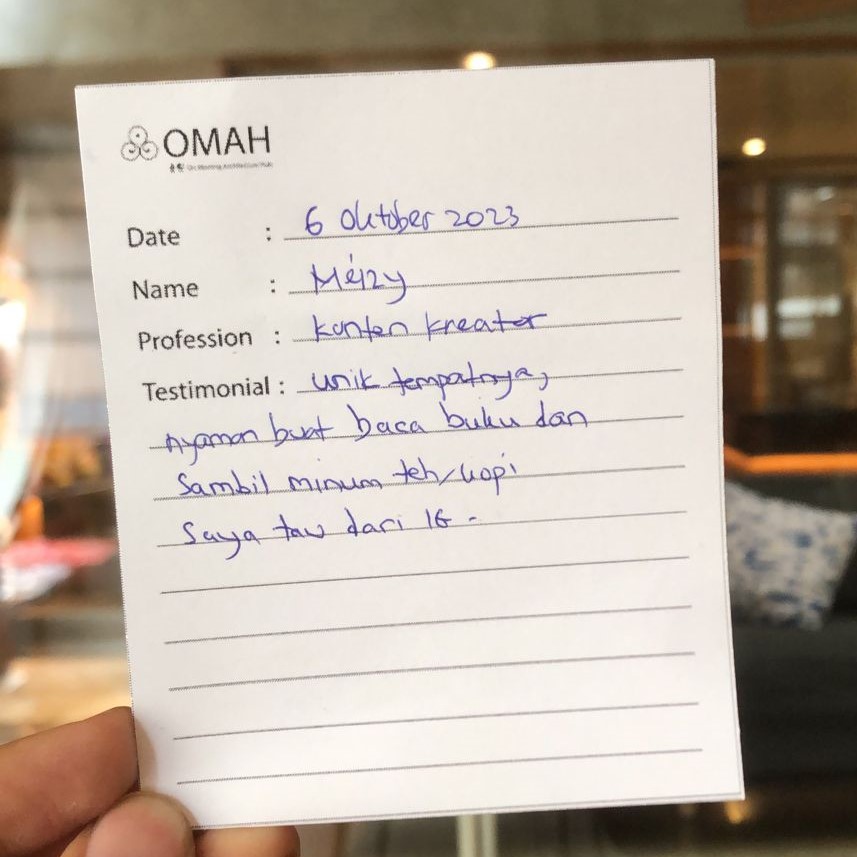 OMAH
Date : 6 Oktober 2023
Name : Meizy
Profession : Konten kreator
Testimonial : unik tempatnya,
nyaman buat baca buku dan
Sambil minum teh/kopi
Saya tau dari IG -